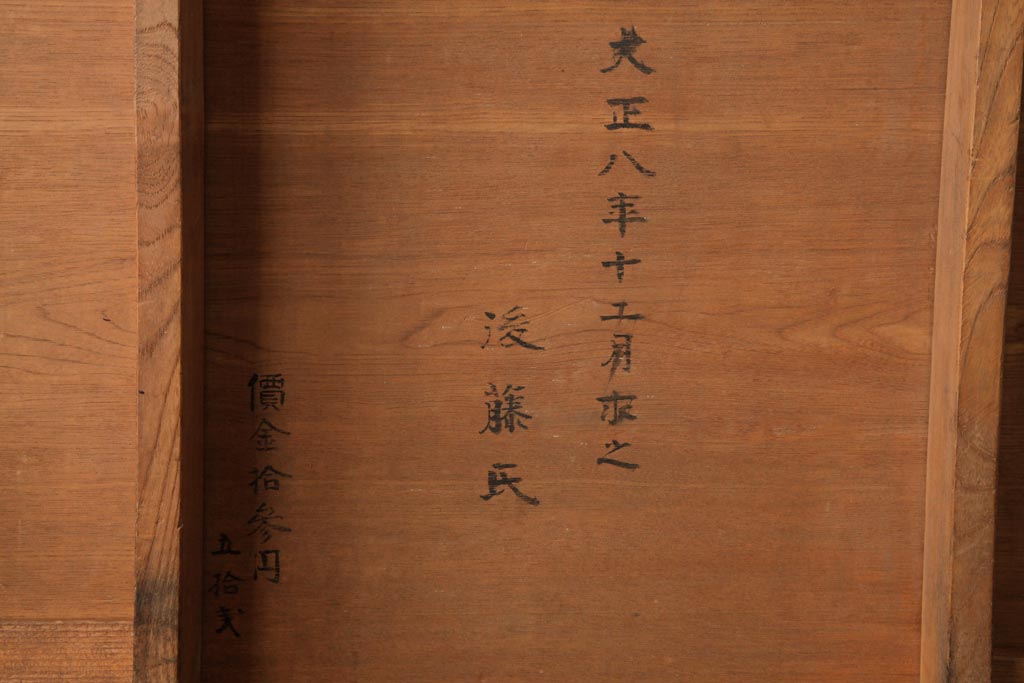 大正八年十二月求之
後藤氏
價金拾参円
五拾戋